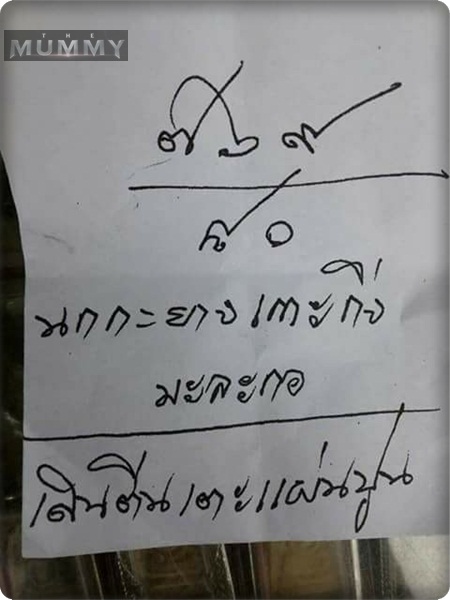 THE MUMMY
๗ ๖ ๙
๘ ๐
นกกะยางเกาะกิ่ง
มะละกอ
เดินตีนเตะแผ่นปูน